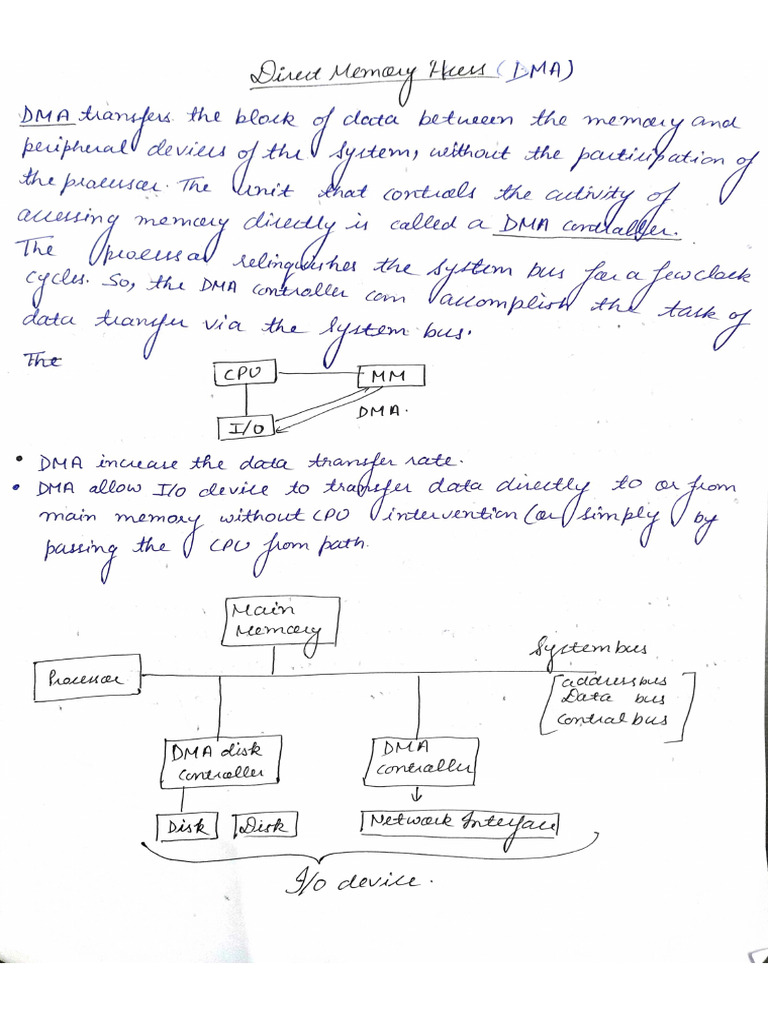 Direct Memory Access (DMA)
DMA transfers the block of data between the memory and
peripheral devices of the system, without the participation of
the processor. The unit that controls the activity of
accessing memory directly is called a DMA controller.
The processor relinquishes the system bus for a few clock
cycles. So, the DMA controller can accomplish the task of
data transfer via the system bus.
The
CPU
MM
DMA.
I/O
• DMA increase the data transfer rate.
• DMA allow I/O device to transfer data directly to or from
main memory without CPU intervention (or simply by
passing the CPU from path.
Main
Memory
System bus
Processor
address bus
Data bus
control bus
DMA disk
controller
DMA
controller
Disk
Disk
Network Interface
I/O device.